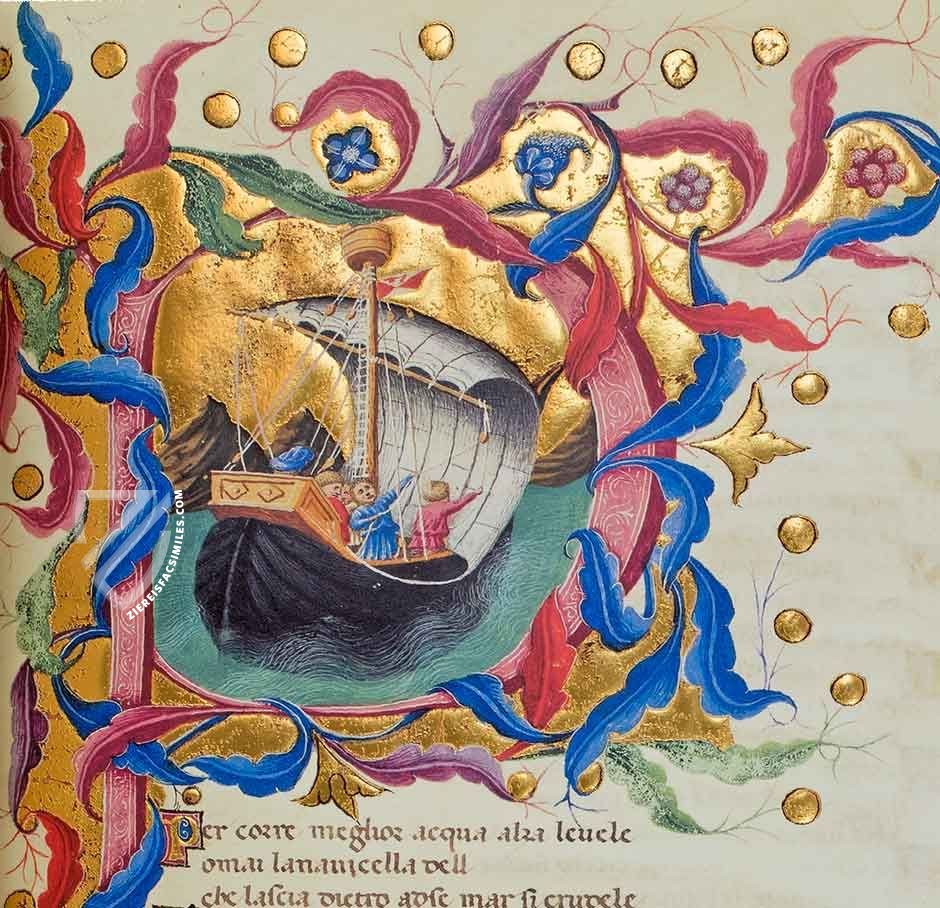 ZIEREISFACSIMILES.COM
Per corre meglior acqua alza leuele
omai lanauicella dell
che lascia dietro adse mar si crudele